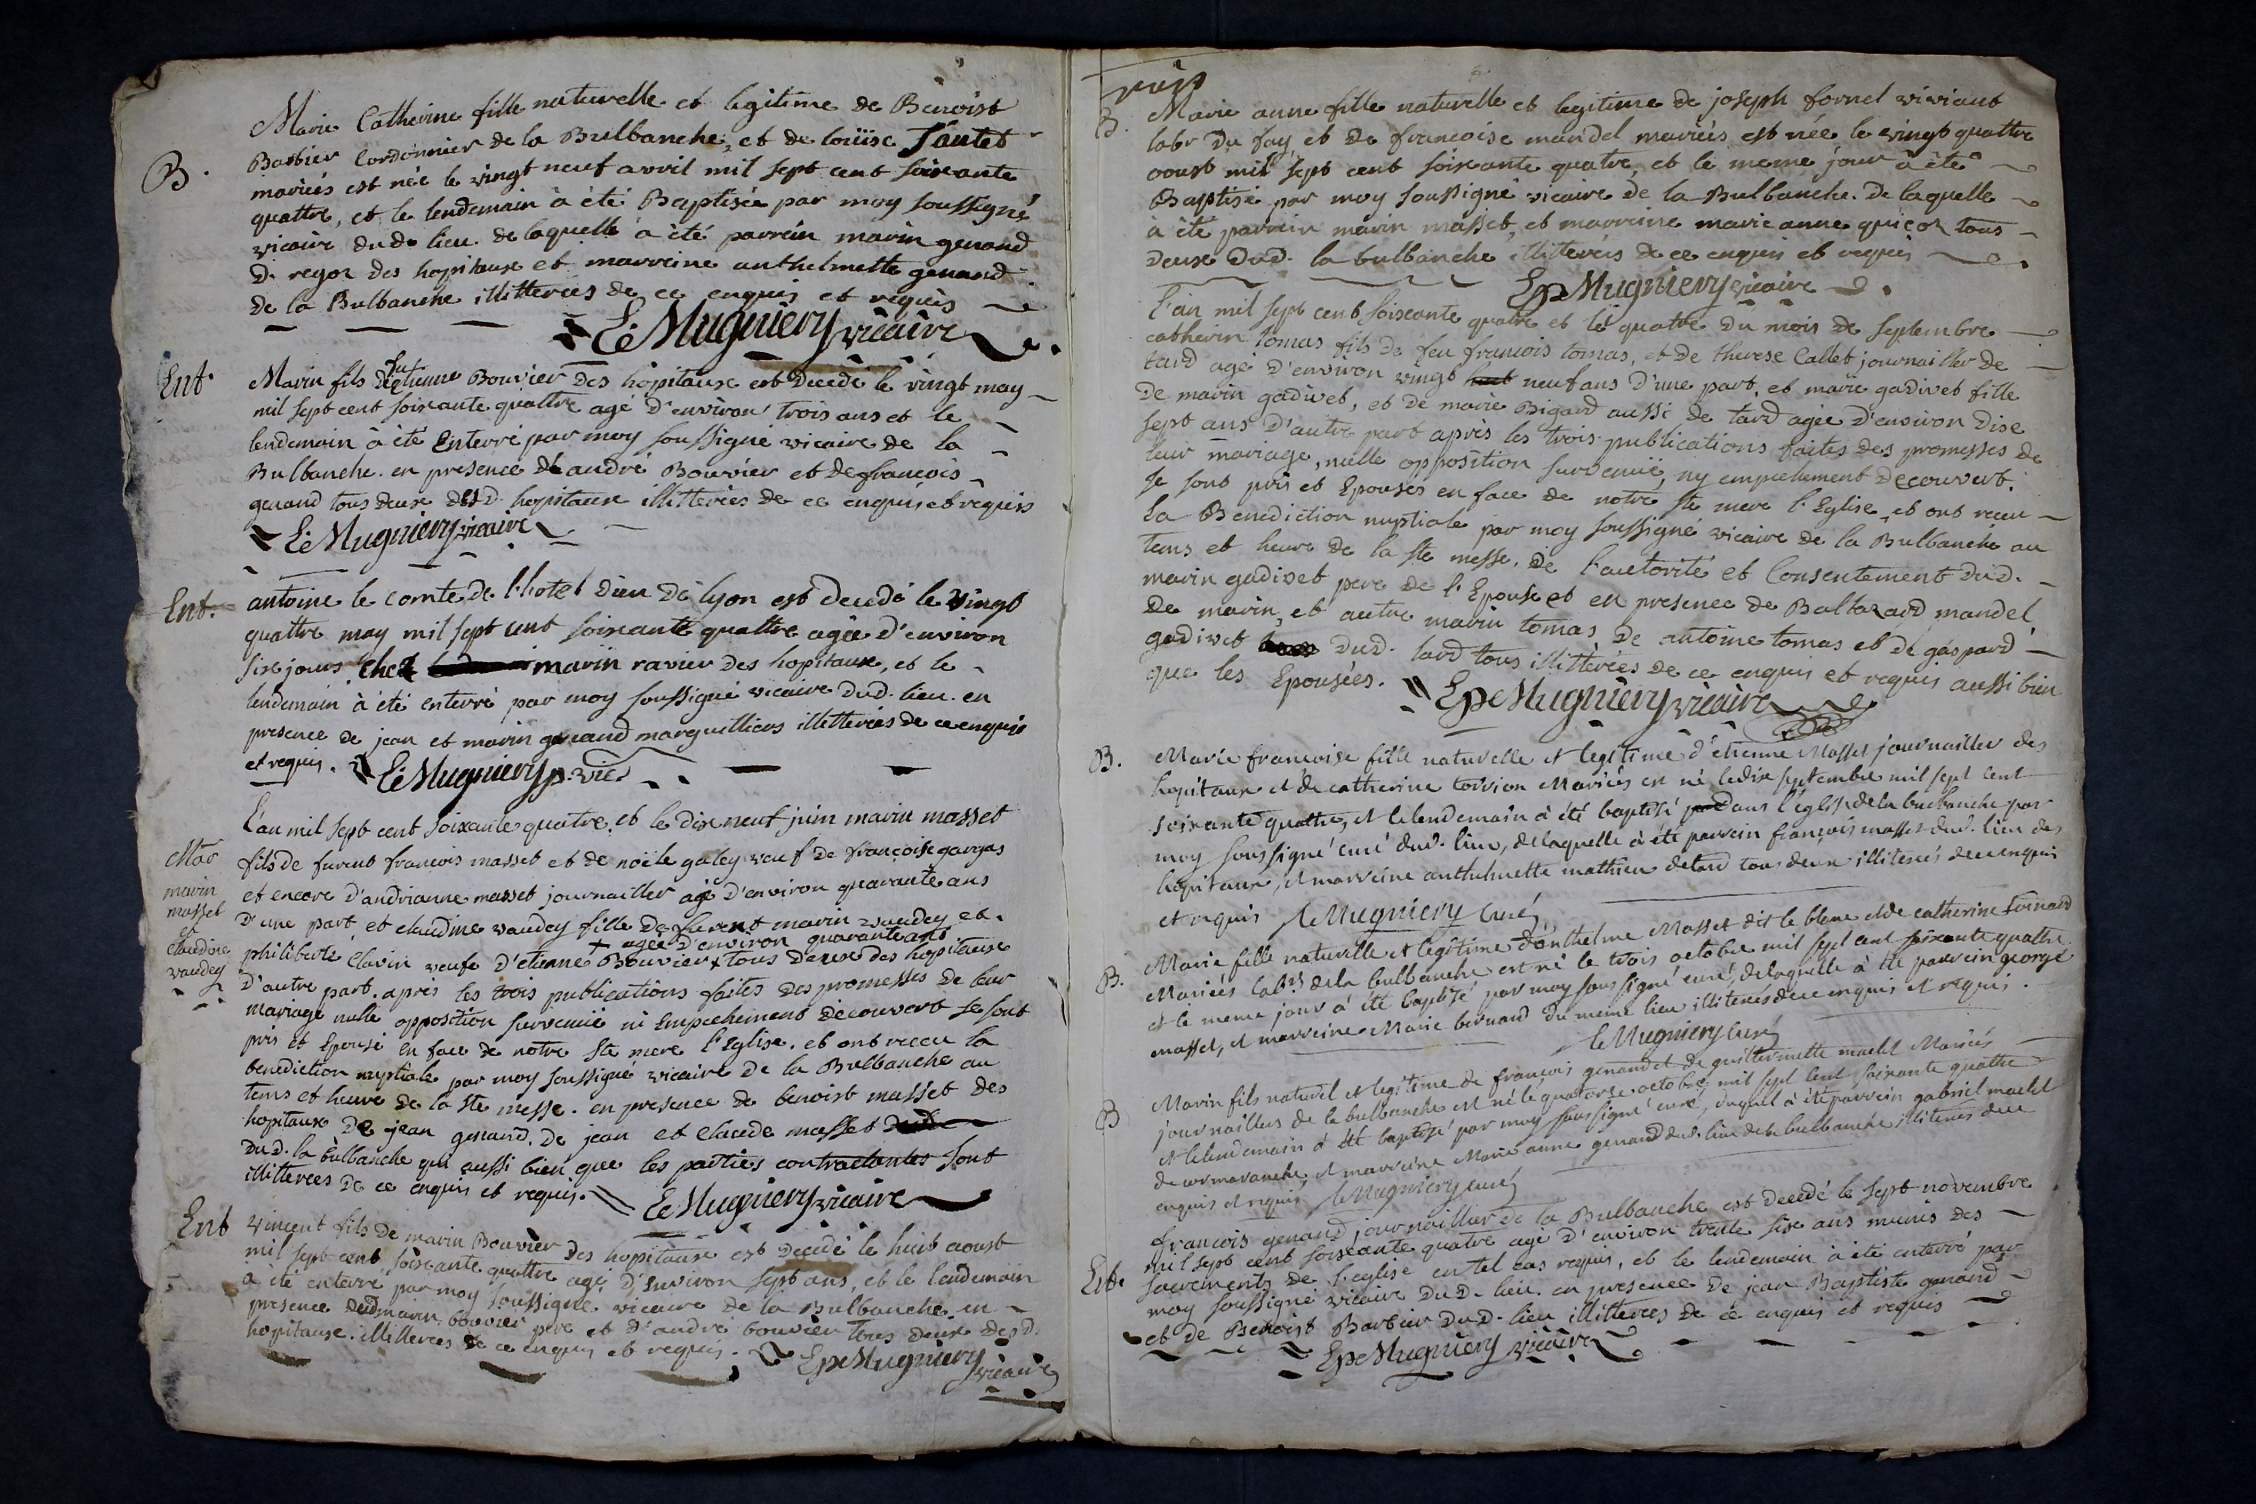 B.
Marie Catherine fille naturelle et legitime de Benoist
Barbier Cordonnier de la Bulbanche, et de loüise Jautet
mariées est née le vingt neuf avril mil sept cent soixante
quattre, et le lendemain à été Baptisée par moy soussigné
vicaire dud. lieu. de laquelle à été parrein marin genand
D. regoz des hopitaux et marreine anthelmette genand
de la Bulbanche illitterées de ce enquis et requis
E Mugniery vicaire
Ent.
Marin fils d'feu etienne Bouvier des hopitaux est decedé le vingt may
mil sept cent soixante quattre agé d'environ trois ans et le
lendemain à été Enterré par moy soussigné vicaire de la
Bulbanche. en presence de andré Bouvier et de francois
genand tous deux desd. hopitaux illitterées de ce enquis et requis
E Mugniery vicaire
Ent.
antoine le comte de l'hotel Dieu de lyon est decedé le vingt
quattre may mil sept cent soixante quattre agée d'environ
six jours chez marin ravier des hopitaux, et le
lendemain à été enterré par moy soussigné vicaire dud. lieu. en
presence de jean et marin genand marguilliers illetterées de ce enquis
et requis. E Mugniery p. vic.
Mar
marin
masset
et
claudine
vaudey
L'an mil sept cent soixante quatre, et le dix neuf juin marin masset
fils de furent francois masset et de noële galey veuf de françoise gargas
et encore d'andrianne masset journailler agé d'environ quarante ans
D'une part et claudine vaudey fille de furent marin vaudey et
+ agée d'environ quarante ans
philiberte Clavin veufe d'etienne Bouvier + tous deux des hopitaux
D'autre part. apres les trois publications faites des promesses de leur
mariage nulle opposition survenuë ni Empechement decouvert se sont
pris et Epousé en face de notre Ste mere l'Eglise. et ont receu la
benediction nuptiale par moy soussigné vicaire de la Bulbanche au
tems et heure de la Ste messe. en presence de benoist masset des
hopitaux de jean genand, de jean et claude masset dud
dud. la bulbanche qui aussi bien que les parties contractantes sont
illitterées de ce enquis et requis. E Mugniery vicaire
Ent
vincent fils de marin Bouvier des hopitaux est decedé le huit aoust
mil sept cent soixante quattre agé d'environ sept ans, et le lendemain
à été enterré par moy soussigné vicaire de la Bulbanche en
presence dud marin bouvier pere et d'andré bouvier tous deux desd.
hopitaux. illitterées de ce enquis et requis. Epe Mugniery
vicaire
B.
Marie anne fille naturelle et legitime de joseph fornel viviant
labr du fay et de francoise mandel mariées est née le vingt quattre
aoust mil sept cent soixante quatre, et le meme jour à été
Baptisé par moy soussigné vicaire de la Bulbanche. De laquelle
à été parrein marin masset, et marreine marie anne quicoz tous
deux dud. la bulbanche illitterées de ce enquis et requis
Epe Mugniery vicaire
L'an mil sept cent soixante quatre et le quatre du mois de septembre
catherin tomas fils de feu francois tomas, et de therese Callet journailler de
tard agé d'environ vingt huit neuf ans d'une part, et marie gadivet fille
de marin gadivet, et de marie Bigard aussi de tard agée d'environ dix
sept ans d'autre part après les trois publications faites des promesses de
leur mariage, nulle opposition survenuë, ny empechement decouvert.
se sont pris et Epousés en face de notre Ste mere l'Eglise, et ont receu
la Benediction nuptiale par moy soussigné vicaire de la Bulbanche au
tems et heure de la Ste messe. De l'autorité et Consentement dud.
marin gadivet pere de l'Epouse et en presence de Baltazard mandel
de marin, et autre marin tomas de antoine tomas et de gaspard
gadivet dud. tard tous illitterées de ce enquis et requis aussi bien
que les Epousées. Epe Mugniery vicaire
B.
Marie francoise fille naturelle et legitime d'etienne Masset journailler des
hopitaux et de catherine torrion Mariées est né le dix septembre mil sept cent
soixante quattre, et le lendemain à été baptisé dans l'eglise de la bulbanche par
moy soussigné curé dud. lieu, de laquelle à été parrein françois masset dud. lieu des
hopitaux, et marreine anthelmette mathieu de tard tous deux illiterés de ce enquis
et requis le Mugniery Curé
B.
Marie fille naturelle et legitime d'anthelme Masset dit le blanc et de catherine
Mariées labrs de la bulbanche est né le trois octobre mil sept cent soixante quattre
et le meme jour à été baptisé par moy soussigné curé, de laquelle à été parrein george
masset, et marreine Marie bernard du meme lieu illiterés de ce enquis et requis.
le Mugniery Curé
B
Marin fils naturel et legitime de francois genand et de guillermette maclet Mariées
journaillers de la bulbanche est né le quatorze octobre, mil sept cent soixante quattre
et le lendemain à été baptisé par moy soussigné curé, duquel à été parrein gabriel maclet
de cormaranche, et marreine Marie anne genand dud. lieu de la bulbanche illiterés de ce
enquis et requis le Mugniery curé
Ent.
francois genand journaillier de la Bulbanche est decedé le sept novembre
mil sept cent soixante quatre agé d'environ trente six ans munis des
sacrements de l'eglise en tel cas requis, et le lendemain à été enterré par
moy soussigné vicaire dud. lieu. en presence de jean Baptiste genand
et de Benoist Barbier dud. lieu illitterées de ce enquis et requis
Epe Mugniery vicaire